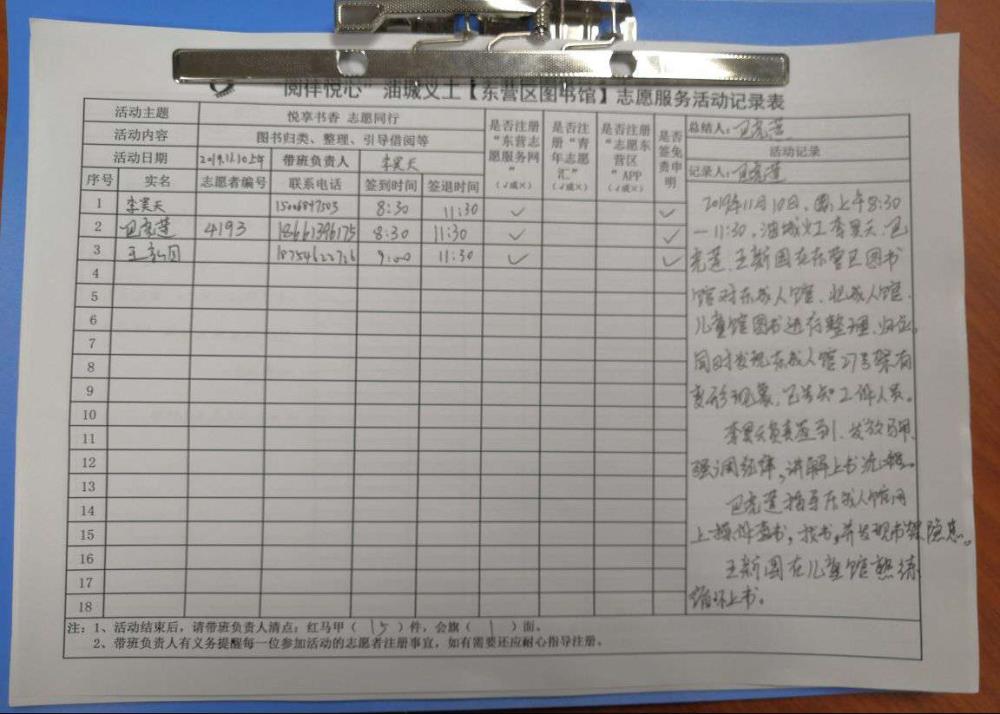 "阅祥悦心"油城义工【东营区图书馆】志愿服务活动记录表
活动主题 悦享书香 志愿同行
活动内容 图书归类、整理、引导借阅等
活动日期 2019.11.10上午 带班负责人 李昊天
序号 实名 志愿者编号 联系电话 签到时间 签退时间
是否注册“东营志愿服务网”（√或×）
是否注册“青年志愿汇”（√或×）
是否注册“志愿东营区”APP（√或×）
是否签免责申明
1 李昊天 8:30 11:30 ✓ ✓
2 4193 18661396175 8:30 11:30 ✓ ✓
3 王新国 18754622726 9:00 11:30 ✓ ✓
4
5
6
7
8
9
10
11
12
13
14
15
16
17
18
总结人：
活动记录
记录人：
2019年11月10日，上午8:30
—11:30，油城义工李昊天、
王新国在东营区图书
馆对东成人馆、北成人馆、
儿童馆图书进行整理、归位。
同时发现东成人馆27号架有
变形现象，已告知工作人员。
李昊天负责签到、发放马甲、
强调纪律，讲解上书流程。
指导东成人馆用
上操作查书，找书，并发现书架隐患。
王新国在儿童馆熟练
循环上书。
注：1、活动结束后，请带班负责人清点：红马甲（ 15 ）件，会旗（ 1 ）面。
2、带班负责人有义务提醒每一位参加活动的志愿者注册事宜，如有需要还应耐心指导注册。